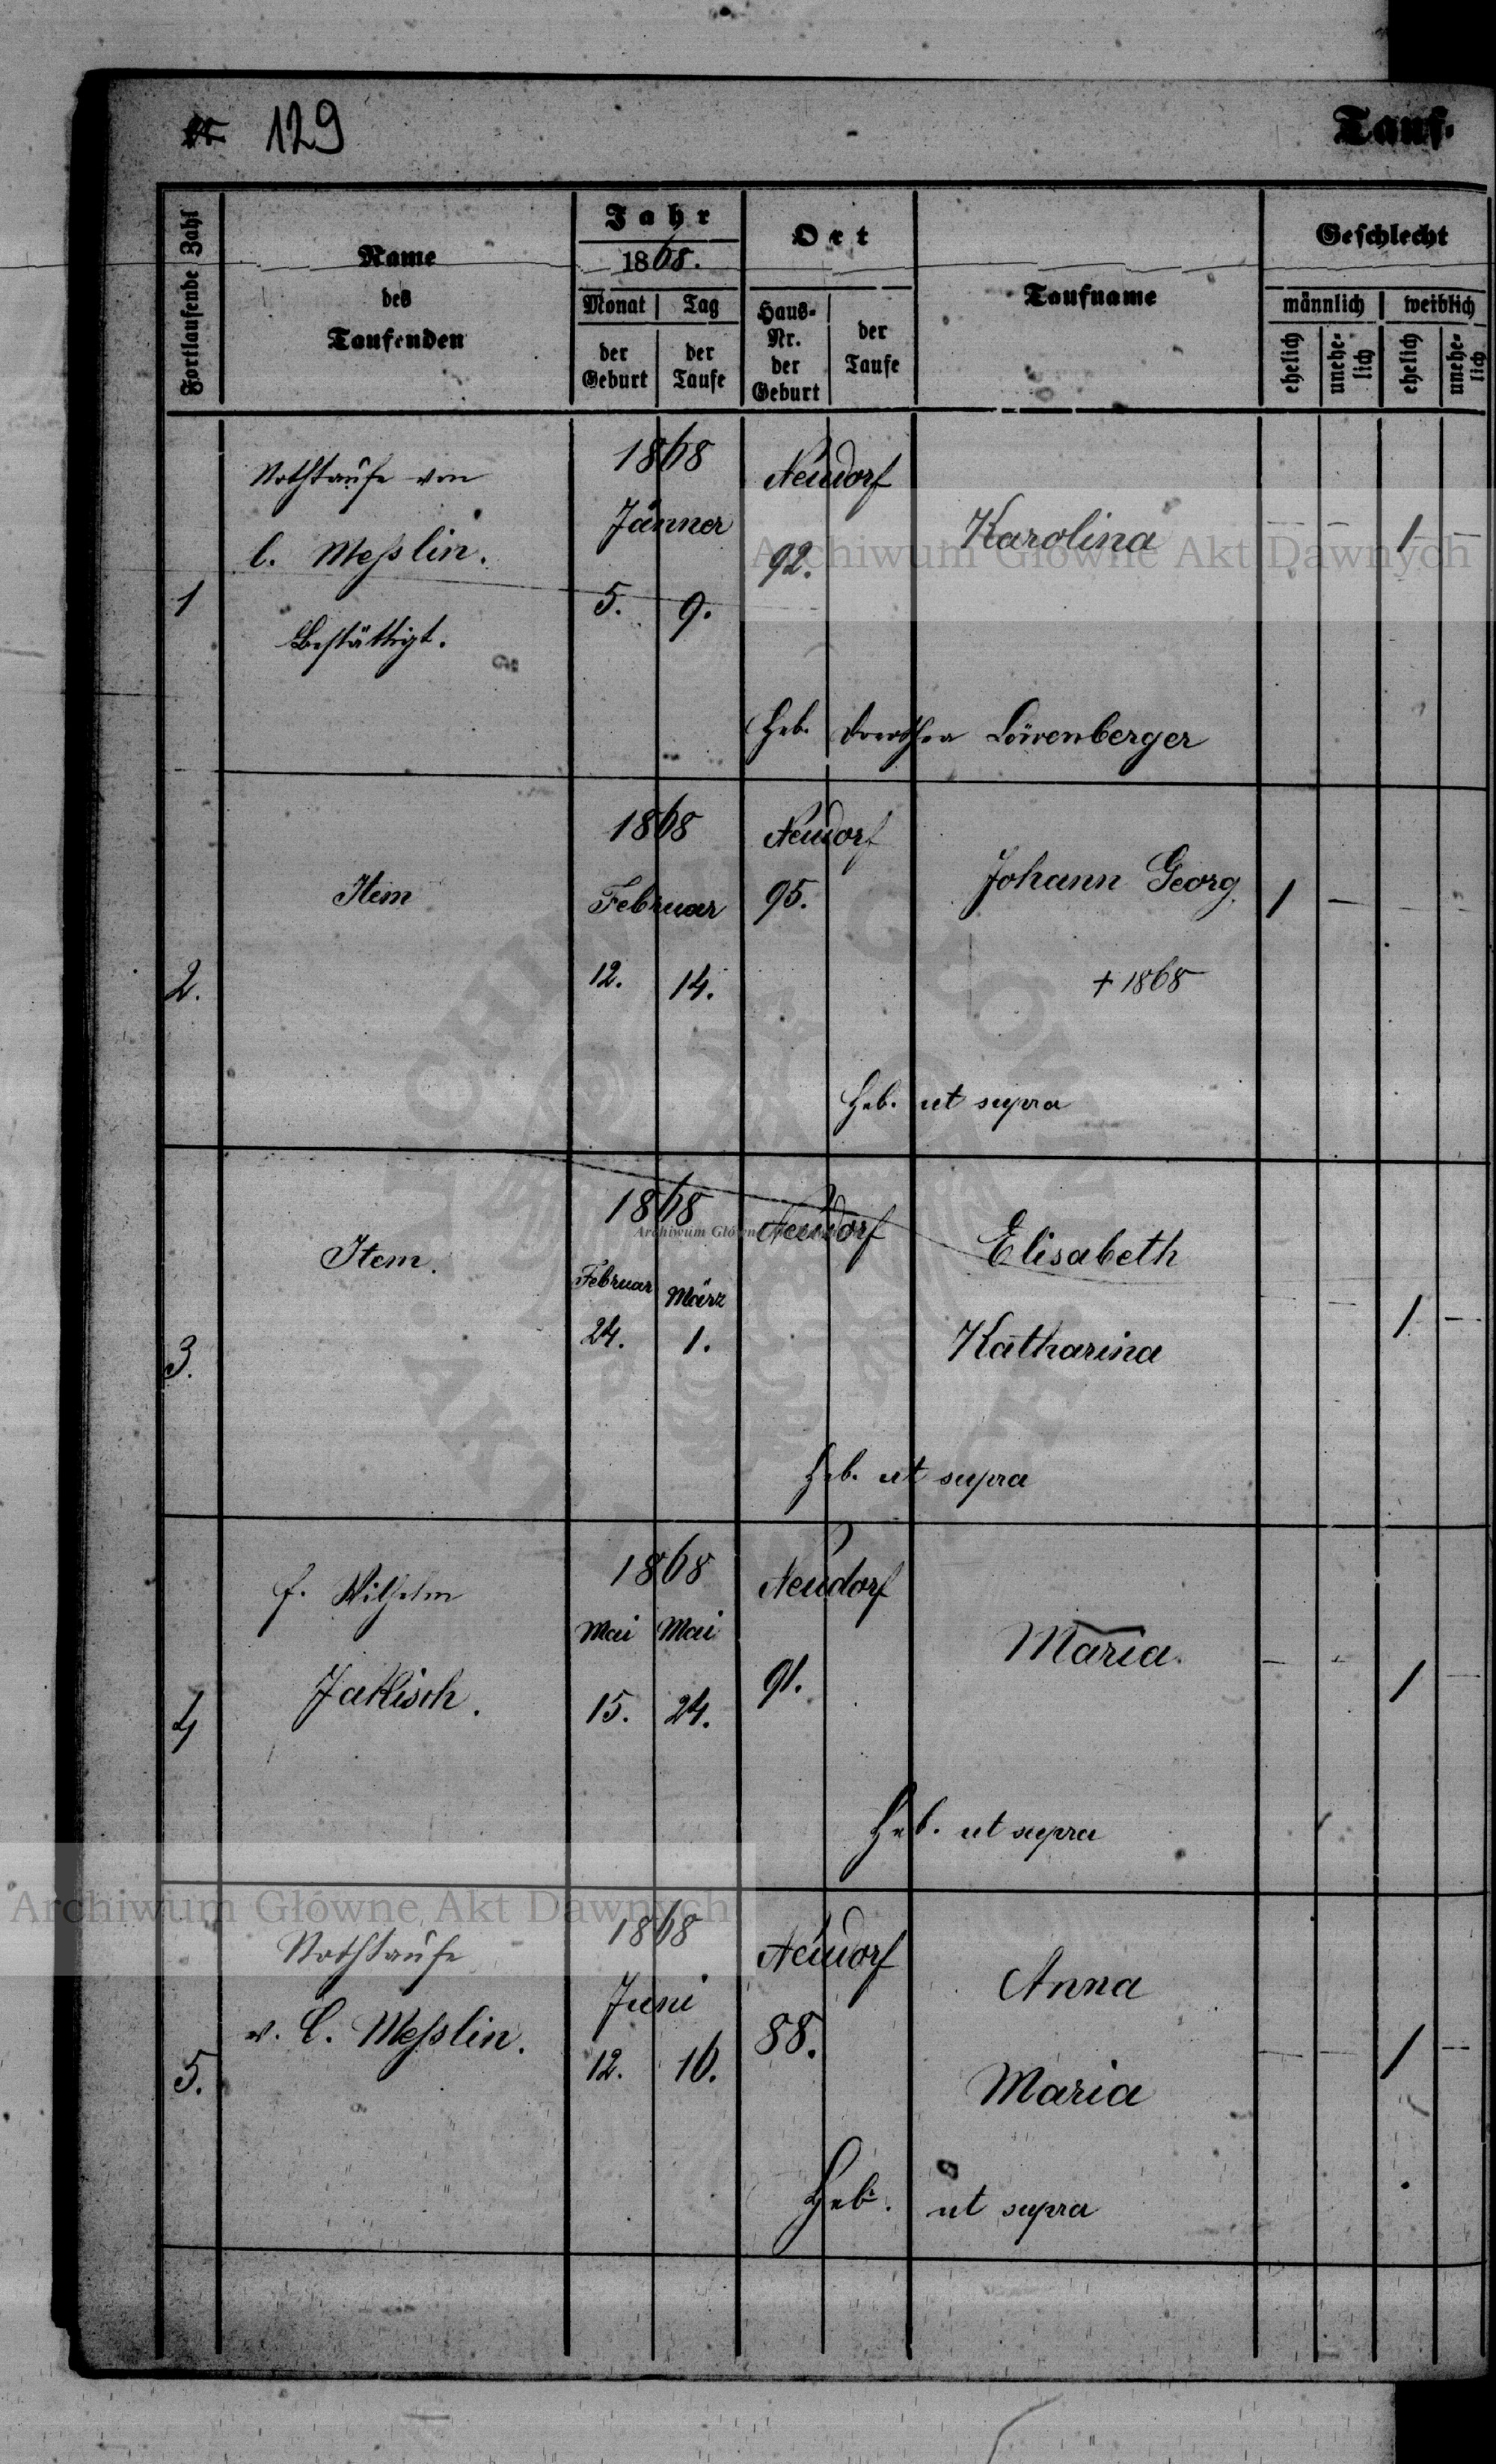 129
Tauf-
Fortlaufende Zahl
Name
des
Taufenden
Jahr
1868.
Monat
Tag
der
Geburt
der
Taufe
Ort
Haus-
Nr.
der
Geburt
der
Taufe
Taufname
Geschlecht
männlich
weiblich
ehelich
unehe-
lich
ehelich
unehe-
lich
1
Nothtaufe von
C. Meßlin.
Bestättigt.
1868
Jänner
5. 9.
Neudorf
92.
Karolina
— — 1 —
Heb. Dorothea Löwenberger
2.
Item
1868
Februar
12. 14.
Neudorf
95.
Johann Georg.
+ 1868
1 — — —
Heb. ut supra
3.
Item.
1868
Februar März
24. 1.
Neudorf
Elisabeth
Katharina
— — 1 —
Heb. ut supra
4
f. Wilhelm
Jaklisch.
1868
Mai Mai
15. 24.
Neudorf
91.
Maria.
— — 1 —
Heb. ut supra
5.
Nothtaufe
v. C. Meßlin.
1868
Juni
12. 16.
Neudorf
88.
Anna
Maria
— — 1 —
Heb. ut supra
Archiwum Główne Akt Dawnych
Archiwum Główne Akt Dawnych